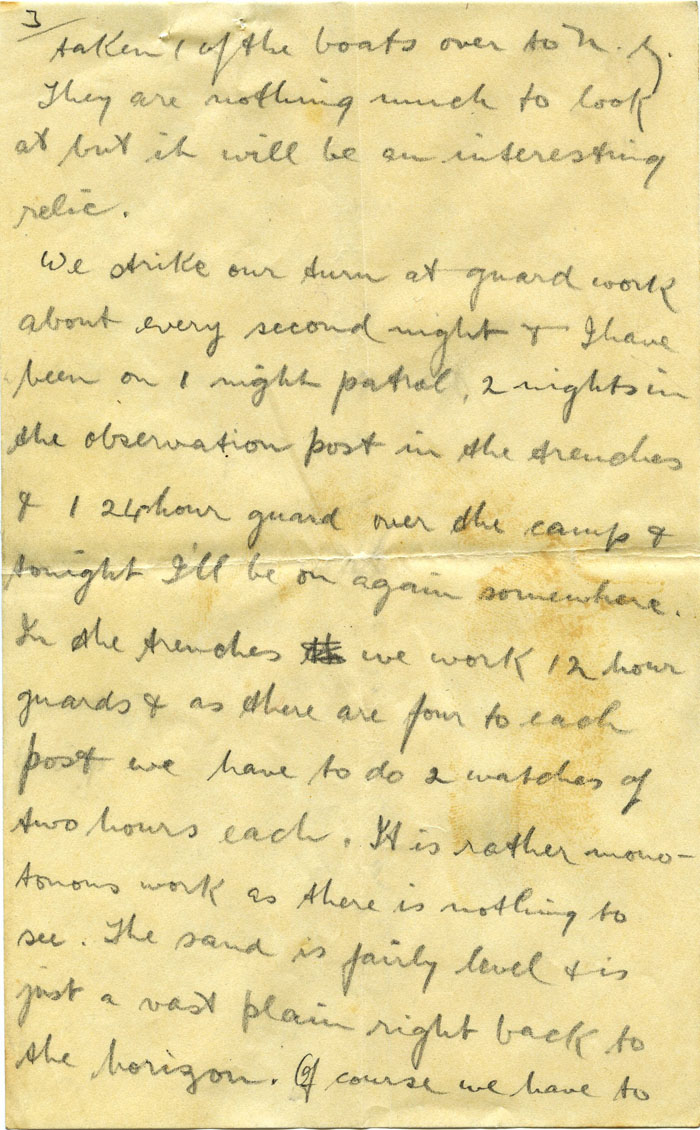 3
taken 1 of the boats over to N. Z.
They are nothing much to look
at but it will be an interesting
relic.
We strike our turn at guard work
about every second night & I have
been on 1 night patrol, 2 nights in
the observation post in the trenches
& 1 24 hour guard over the camp &
tonight I'll be on again somewhere.
In the trenches we work 12 hour
guards & as there are four to each
post we have to do 2 watches of
two hours each. It is rather mono-
tonous work as there is nothing to
see. The sand is fairly level & is
just a vast plain right back to
the horizon. Of course we have to